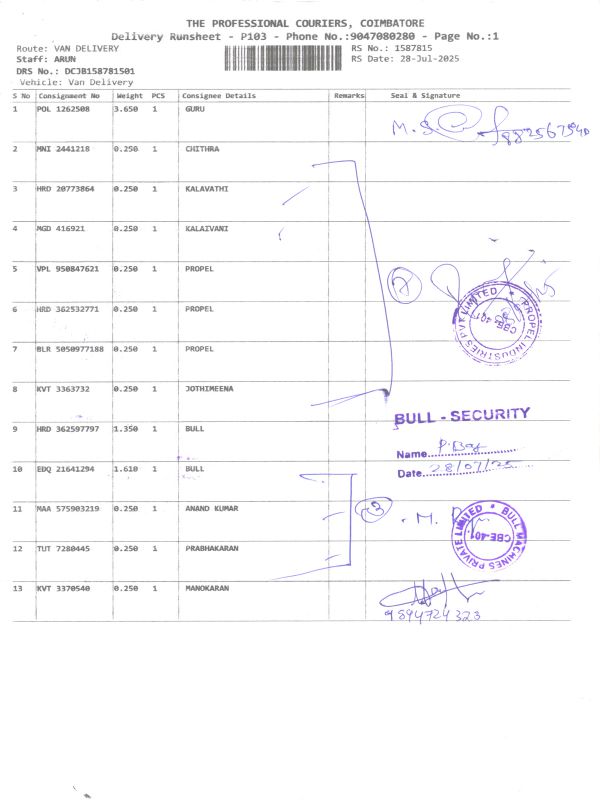 THE PROFESSIONAL COURIERS, COIMBATORE
Delivery Runsheet - P103 - Phone No.:9047080280 - Page No.:1
Route: VAN DELIVERY RS No.: 1587815
Staff: ARUN RS Date: 28-Jul-2025
DRS No.: DCJB158781501
Vehicle: Van Delivery
S No Consignment No Weight PCS Consignee Details Remarks Seal & Signature
1 POL 1262508 3.650 1 GURU
M. S.
2 MNI 2441218 0.250 1 CHITHRA
3 HRD 20773864 0.250 1 KALAVATHI
4 MGD 416921 0.250 1 KALAIVANI
5 VPL 950847621 0.250 1 PROPEL
7
PROPEL INDUSTRIES PVT LIMITED
CBE-401
6 HRD 362532771 0.250 1 PROPEL
7 BLR 5050977188 0.250 1 PROPEL
8 KVT 3363732 0.250 1 JOTHIMEENA
BULL - SECURITY
9 HRD 362597797 1.350 1 BULL
Name
10 EDQ 21641294 1.610 1 BULL
Date 28/07/25
11 MAA 575903219 0.250 1 ANAND KUMAR
3 M.
BULL MACHINES PRIVATE LIMITED
CBE-401
12 TUT 7280445 0.250 1 PRABHAKARAN
13 KVT 3370540 0.250 1 MANOKARAN
9894724323